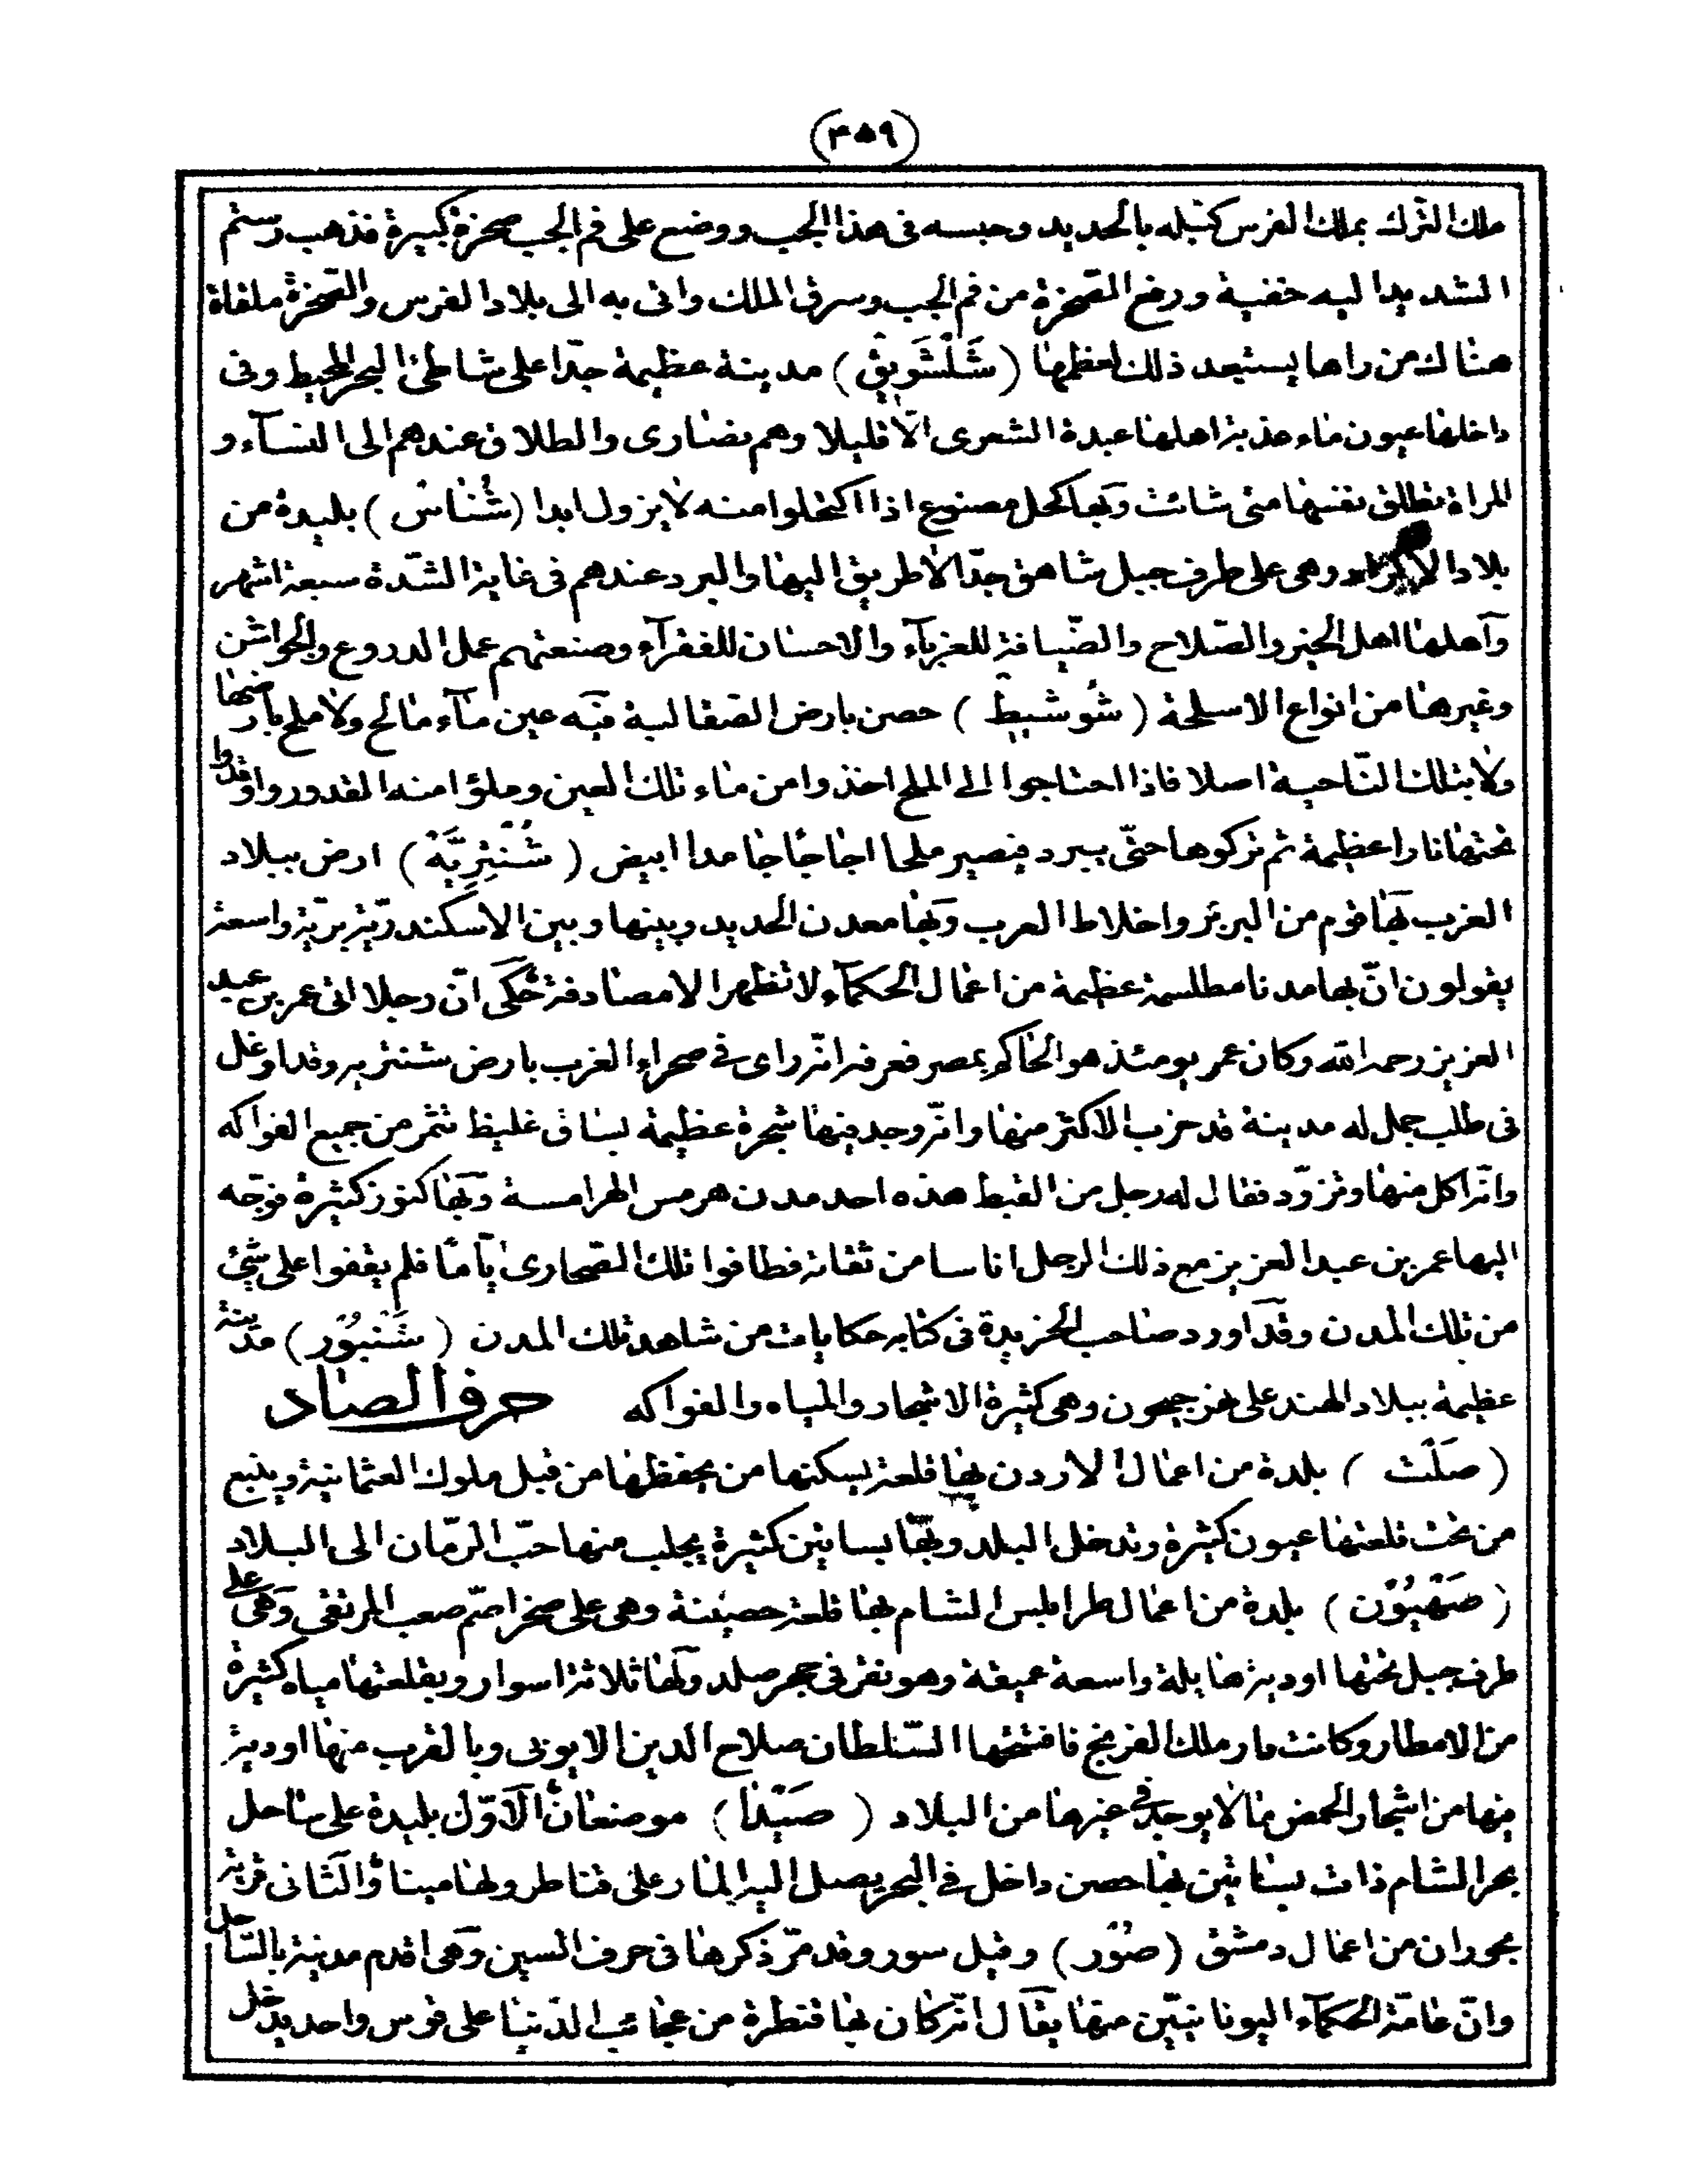 (٤٥٩)
ملك الترك بملك الفرس كبله بالحديد وحبسه في هذا الجب ووضع على فم الجب صخرة كبيرة فذهب رستم
الشديد اليه خفية ورفع الصّخرة من فم الجب وسرق الملك واتى به الى بلاد الفرس والصّخرة ملقاة
هناك من راها يستبعد ذلك لعظمها (شَلْشَويق) مدينة عظيمة جدّا على شاطئ البحر المحيط وفى
داخلها عيون ماء عذبة اهلها عبدة الشعرى الّا قليلا وهم نصارى والطلاق عندهم الى النسآء و
المراة تطلق نفسها متى شائت وبها كحل مصنوع اذا اكتحلوا منه لا يزول ابدا (شُناس) بليدة من
بلاد وهى على طرف جبل شاهق جدّا لا طريق اليها والبرد عندهم فى غاية الشّدة سبعة اشهر
وآهلها اهل الخير والصّلاح والضّيافة للغربآء والاحسان للفقرآء وصنعتهم عمل الدروع والجواشن
وغيرها من انواع الاسلحة (شُوشيط) حصن بارض الصقالبة فيه عين مآء مالح ولا ملح بارضها
ولا بتلك النّاحية اصلا فاذا احتاجوا الى الملح اخذوا من ماء تلك العين وملؤا منه القدور واوقدوا
تحتها نارا عظيمة ثم تركوها حتّى يبرد فيصير ملحا اجاجا جامدا ابيض (شَنْتِرِيَّة) ارض ببلاد
الغرب بها قوم من البربر واخلاط العرب وبها معدن الحديد وبينها وبين الاسكندريّة برّيّة واسعة
يقولون انّ بها مدنا مطلسمة عظيمة من اعمال الحكمآء لا تظهر الا مصادفة حُكى انّ رجلا اتى عمر بن عبد
العزيز رحمه الله وكان عمر يومئذ هو الحاكم بمصر فعرفه انّه راى فى صحراء الغرب بارض شنتريه وقد اوغل
فى طلب جمل له مدينة قد خرب الاكثر منها وانّه وجد فيها شجرة عظيمة بساق غليظ تثمر من جميع الفواكه
وانّه اكل منها وتزوّد فقال له رجل من القبط هذه احد مدن هرمس الهرامسة وبها كنوز كثيرة فوجّه
اليها عمر بن عبد العزيز مع ذلك الرجل اناسا من ثقاته فطافوا تلك الصّحارى ايّاما فلم يقفوا على شئ
من تلك المدن وقد اورد صاحب الخريدة فى كتابه حكايات من شاهد تلك المدن (شَنْبُوْر) مدينة
عظيمة ببلاد الهند على نهر جيحون وهى كثيرة الاشجار والمياه والفواكه حرف الصاد
(صَلْت) بلدة من اعمال الاردن بها قلعة يسكنها من يحفظها من قبل ملوك العثمانية وينبع
من تحت قلعتها عيون كثيرة وتدخل البلد وبها بساتين كثيرة يجلب منها حبّ الرّمان الى البلاد
(صَهْيُوْن) بلدة من اعمال طرابلس الشام بها قلعة حصينة وهى على صخر اصمّ صعب المرتقى وهى على
طرف جبل تحتها اودية هايلة واسعة عميقة وهو نقر فى حجر صلد ولها ثلاثة اسوار وبقلعتها مياه كثيرة
من الامطار وكانت دار ملك الفرنج فافتتحها السّلطان صلاح الدين الايوبى وبالقرب منها اودية
فيها من اشجار الحمض ما لا يوجد فى غيرها من البلاد (صَيْدا) موضعان الاوّل بليدة على ساحل
بحر الشام ذات بساتين بها حصن داخل فى البحر يصل اليه المار على قناطر ولها مينا والثانى قرية
بحوران من اعمال دمشق (صُوْر) وقيل سور وقد مرّ ذكرها فى حرف السين وهى اقدم مدينة بالسّاحل
وانّ عامّة الحكمآء اليونانيّين منها يقال انّه كان بها قنطرة من عجائب الدّنيا على قوس واحد يدخل